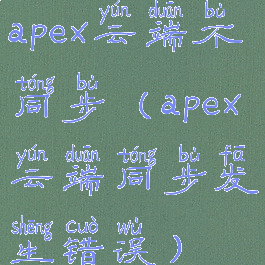 yún duān bù
apex云端不
tóng bù
同步（apex
yún duān tóng bù fā
云端同步发
shēng cuò wù
生错误）